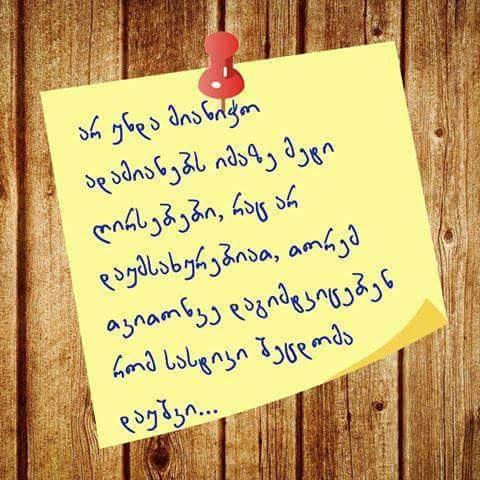 არ უნდა მიანიჭო
ადამიანებს იმაზე მეტი
ღირსებები, რაც არ
დაუმსახურებიათ, თორემ
თვითონვე დაგიმტკიცებენ
რომ სასტიკი შეცდომა
დაუშვი...